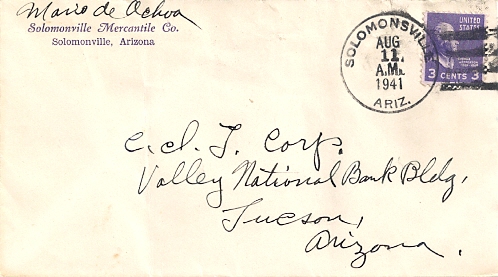 Mario de Ochoa
Solomonville Mercantile Co.
Solomonville, Arizona
SOLOMONSVILLE
AUG
11
A.M.
1941
ARIZ.
UNITED
STATES
3 CENTS 3
C.I.T. Corp.
Valley National Bank Bldg,
Tucson,
Arizona.